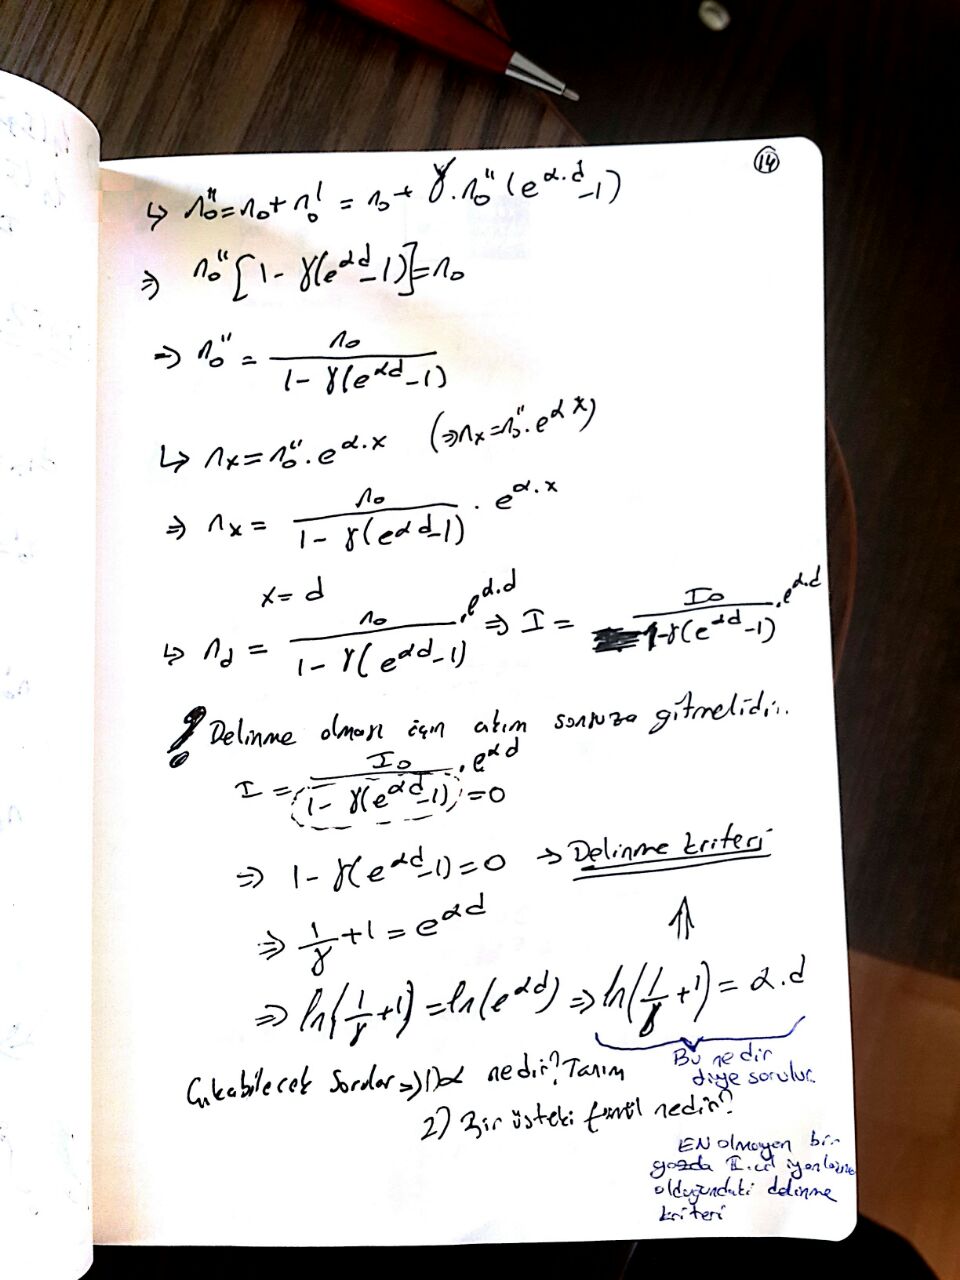 14
↳ n₀'' = n₀ + n₀' = n₀ + γ.n₀''(e^α.d -1)
⇒ n₀''[1 - γ(e^αd -1)] = n₀
⇒ n₀'' = n₀ / (1 - γ(e^αd -1))
↳ nx = n₀''. e^α.x (⇒ nx = n₀''. e^αx)
⇒ nx = n₀ / (1 - γ(e^αd -1)) . e^α.x
x = d
↳ nd = n₀ / (1 - γ(e^αd -1)) . e^α.d ⇒ I = I₀ / (1 - γ(e^αd -1)) . e^α.d
! Delinme olması için akım sonsuza gitmelidir.
I = I₀ / (1 - γ(e^αd -1)) . e^αd = 0
⇒ 1 - γ(e^αd -1) = 0 → Delinme kriteri
⇒ 1/γ + 1 = e^αd ⇑
⇒ ln(1/γ + 1) = ln(e^αd) ⇒ ln(1/γ + 1) = α.d
Bu nedir
diye sorulur.
Çıkabilecek Sorular ⇒ 1) α nedir? Tanım
2) Bir üsteki formül nedir?
EN olmayan bir
gazda II.cil iyonlaşma
olduğundaki delinme
kriteri